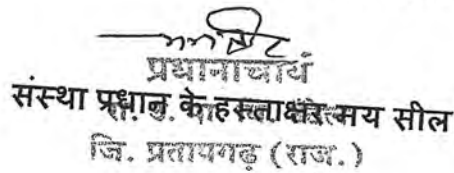 प्रधानाचार्य
संस्था प्रधान के हस्ताक्षर मय सील
जि. प्रतापगढ़ (राज.)